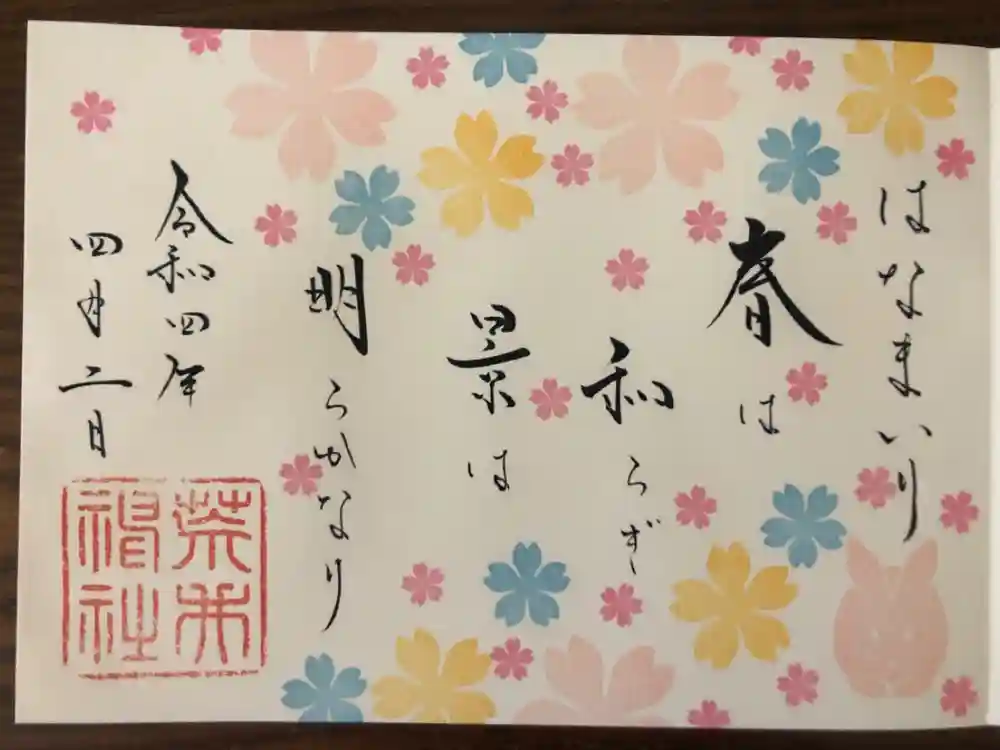 はなまいり
春は
和らぎ
景は
明らかなり
令和四年
四月二日
神社